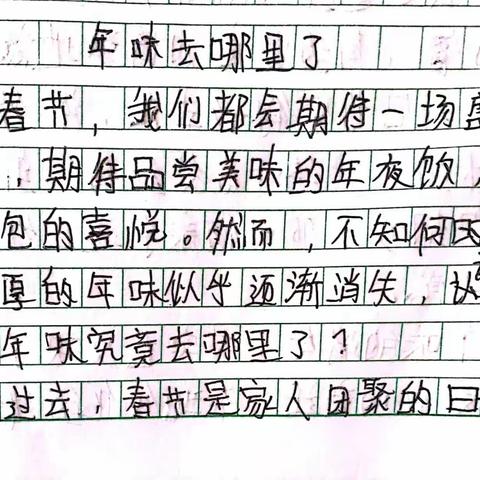 年味去哪里了
春节，我们都会期待一场
，期待品尝美味的年夜饮
包的喜悦。然而，不知何
厚的年味似乎逐渐消失，
年味究竟去哪里了？
过去，春节是家人团聚的日